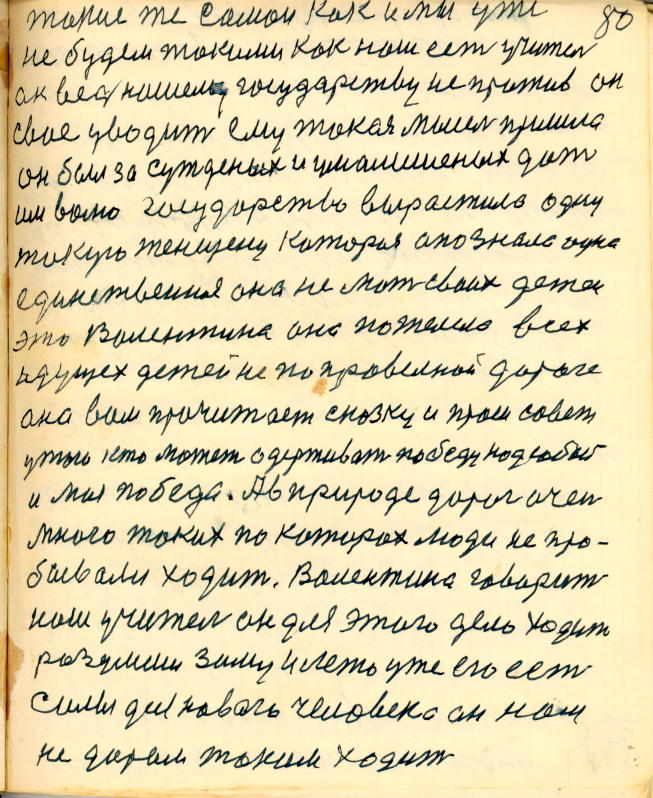 80
такие же самои как и мы уже
не будем такими как наш ест учител
ок вед нашему государству не против он
свое уводит ему токая мысел пришла
он был за сужденых и умалишеных дат
им волю государство вырастила одну
токую женщену которая опознала одна
единственная она не мат своих детеи
это Валентина она пожелела всех
идущех детей не по провелной дороге
она вам прочитает сказку и прош совет
у того кто может одерживат победу над собой
и моя победа. А в природе дорог очен
много токих по которох люди не про-
бывали ходит. Валентина говорит
наш учител он для этого дело ходит
разумши зиму и лето уже его ест
силы для новаго человека он нам
не даром таким ходит